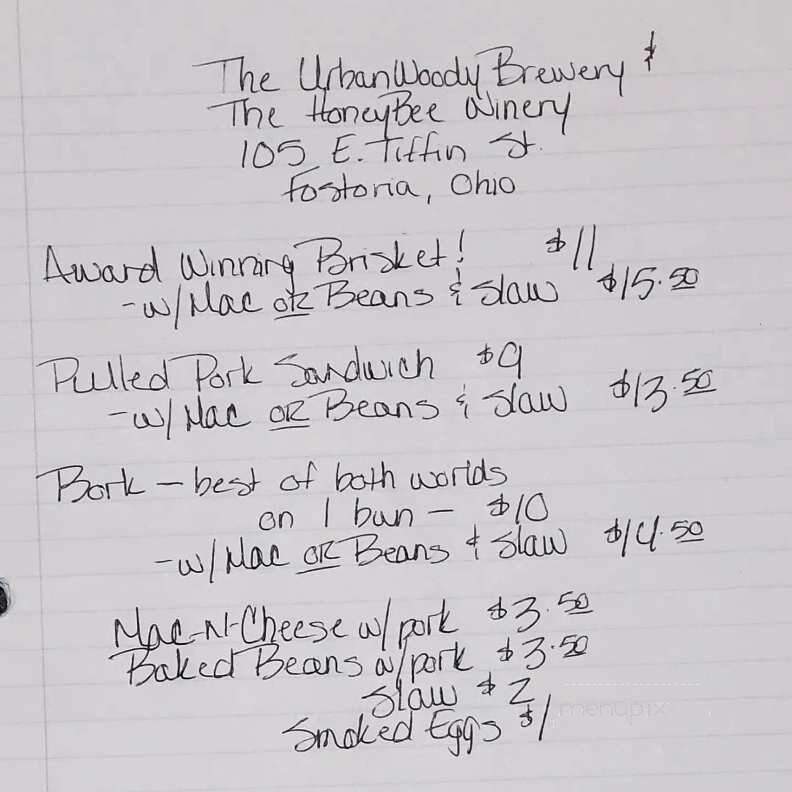 The UrbanWoody Brewery &
The HoneyBee Winery
105 E. Tiffin St.
Fostoria, Ohio
Award Winning Brisket! $11
-w/Mac OR Beans & Slaw $15.50
Pulled Pork Sandwich $9
-w/Mac OR Beans & Slaw $13.50
Bork - best of both worlds
on 1 bun - $10
-w/Mac OR Beans & Slaw $14.50
Mac-N-Cheese w/pork $3.50
Baked Beans w/pork $3.50
Slaw $2
Smoked Eggs $1
menupix